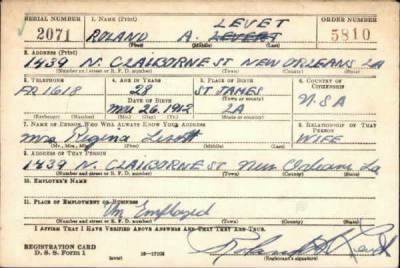 SERIAL NUMBER 1. NAME (Print) LEVET ORDER NUMBER
2071 ROLAND A. LEVERT 5810
(First) (Middle) (Last)
2. ADDRESS (Print)
1439 N. CLAIBORNE ST NEW ORLEANS LA
(Number and street or R. F. D. number) (Town) (County) (State)
3. TELEPHONE 4. AGE IN YEARS 5. PLACE OF BIRTH 6. COUNTRY OF CITIZENSHIP
FR 1618 28 ST JAMES U.S.A
DATE OF BIRTH (Town or county)
26 1912 LA
(Exchange) (Number) (Mo.) (Day) (Yr.) (State or country)
7. NAME OF PERSON WHO WILL ALWAYS KNOW YOUR ADDRESS 8. RELATIONSHIP OF THAT PERSON
Mrs Regina WIFE
(Mr., Mrs., Miss) (First) (Middle) (Last)
9. ADDRESS OF THAT PERSON
1439 N. CLAIBORNE ST New Orleans La
(Number and street or R. F. D. number) (Town) (County) (State)
10. EMPLOYER'S NAME
11. PLACE OF EMPLOYMENT OR BUSINESS
Un Employed
(Number and street or R. F. D. number) (Town) (County) (State)
I AFFIRM THAT I HAVE VERIFIED ABOVE ANSWERS AND THAT THEY ARE TRUE.
REGISTRATION CARD
D. S. S. Form 1 (over) 16-17105